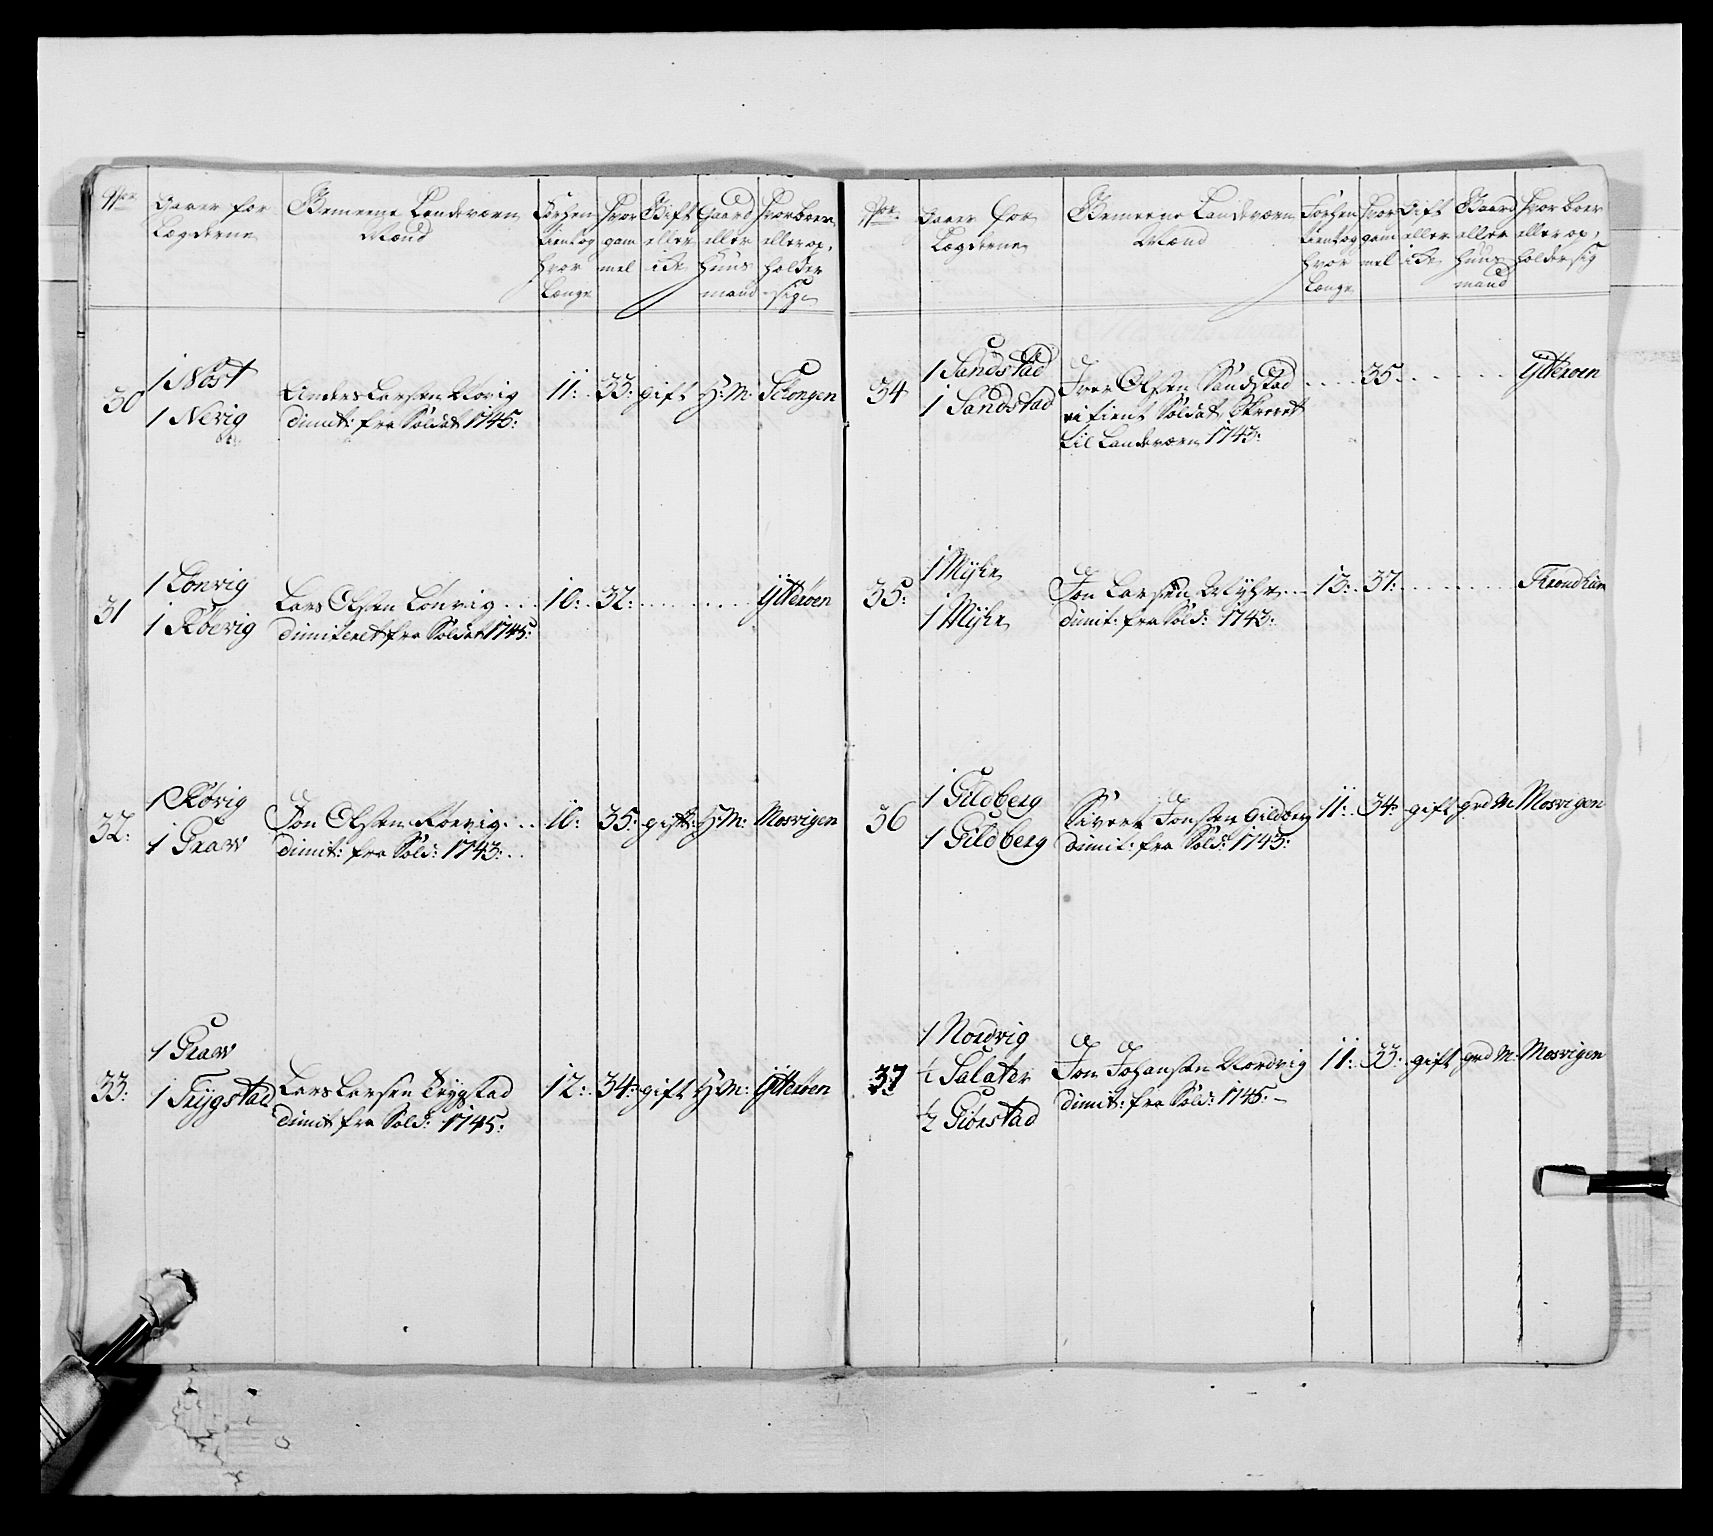 Nor
Garer for Lægderne
Gemeene Landeværn Mænd
Forhen tient og hvor Længe
Hvor gammel
Gift eller icke
Gaard eller Huusmand
Hvor boer eller opholder sig
30
1 Nøst
1 Nervig
Anders Larsen Norvig
dimit: fra Soldat 1745:
11: 33: gift H: M: Schongen
31
1 Lønvig
1 Røevig
Lars Olsen Lønvig
dimiteret fra Soldat 1745:
10: 32: Ytterøen
32:
1 Rørvig
1 Graw
Jon Olsen Røevig
dimit: fra Sold: 1743:
10: 35: gift: H: M: Mosvigen
33:
1 Graw
1 Trygstad
Lars Larsen Trygstad
dimit fra Sold: 1745:
12: 34: gift H: M: Ytterøen
Nor
Garer for Lægderne
Gemeene Landeværn Mænd
Forhen tient og hvor Længe
Hvor gammel
Gift eller icke
Gaard eller Huusmand
Hvor boer eller opholder sig
34
1 Sandstad
1 Sandstad
Iver Olsen Sandstad
ei tient Soldat
til Landeværn 1743:
35: Ytterøen
35:
1 Myhr
1 Myhr
Jon Larsen Myhr
dimit: fra Sold: 1743:
13: 37:
36
1 Gildberg
1 Gildberg
Sivert Jonsen Gildberg
dimit: fra Sold: 1745:
11: 34: gift grd M: Mosvigen
37
1 Nordvig
½ Salater
½ Giørstad
Jon Johansen Nordvig
dimit: fra Sold: 1745:
11: 33: gift grd M: Mosvigen